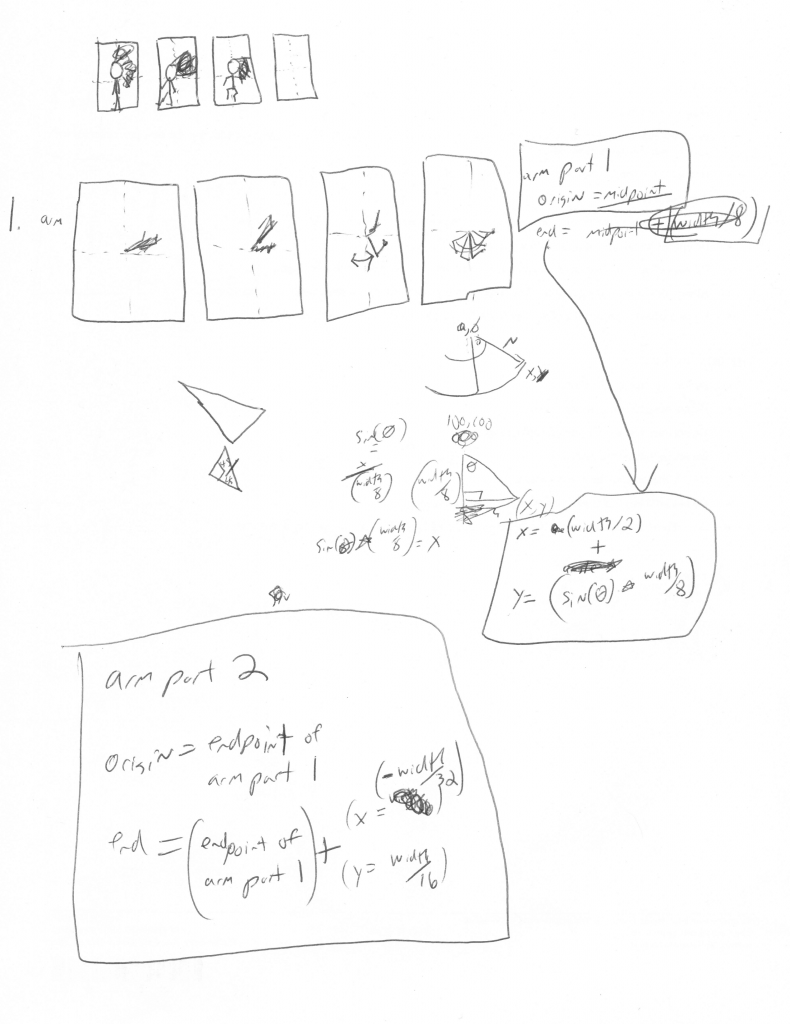 1. arm
arm part 1
origin = midpoint
end = midpoint + (width/8)
x,y
sin(θ)
=
x
(width/8)
100,100
(width/8)
θ
(x,y)
sin(θ) * (width/8) = x
x = (width/2)
+
y = (sin(θ) * width/8)
arm part 2
origin = endpoint of
arm part 1
end = (endpoint of
arm part 1) +
(x = (-width/32)
(y = width/16)